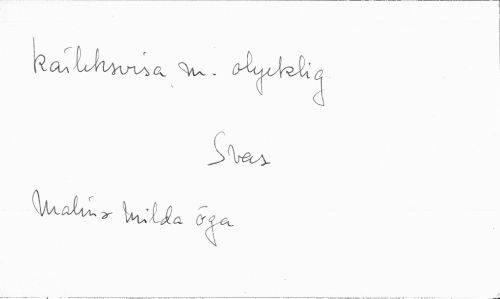 kärleksvisa m. olycklig
Svar
Malins milda öga